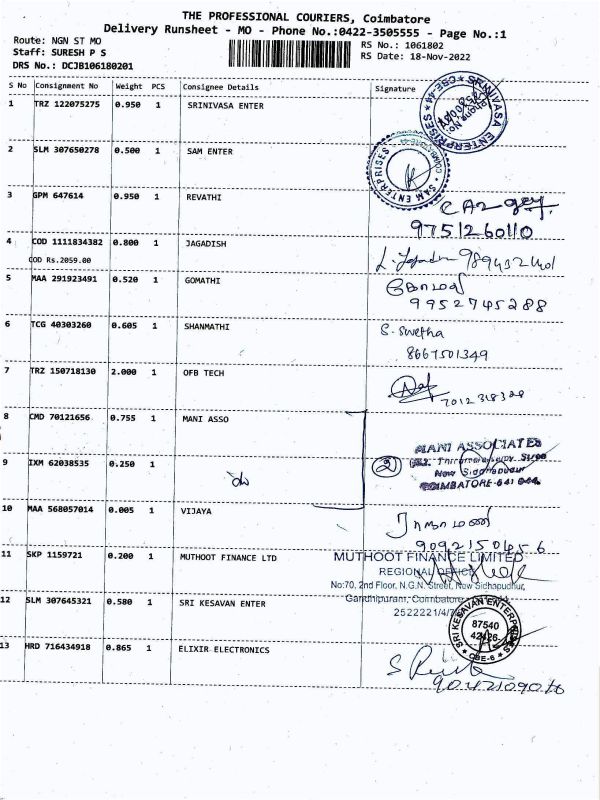 THE PROFESSIONAL COURIERS, Coimbatore
Delivery Runsheet - MO - Phone No.:0422-3505555 - Page No.:1
Route: NGN ST MO
Staff: SURESH P S
DRS No.: DCJB106180201
RS No.: 1061802
RS Date: 18-Nov-2022
S No Consignment No Weight PCS Consignee Details Signature
1 TRZ 122075275 0.950 1 SRINIVASA ENTER
SRINIVASA ENTERPRISES CBE-44
Phone No
2 SLM 307650278 0.500 1 SAM ENTER
SAM ENTERPRISES
3 GPM 647614 0.950 1 REVATHI
9751260110
4 COD 1111834382 0.800 1 JAGADISH
COD Rs.2059.00
5 MAA 291923491 0.520 1 GOMATHI
கோமதி
9952745288
6 TCG 40303260 0.605 1 SHANMATHI
S. Swetha
8667501349
7 TRZ 150718130 2.000 1 OFB TECH
7012318328
8 CMD 70121656 0.755 1 MANI ASSO
MANI ASSOCIATES
New Siddhapudur
COIMBATORE-641 044.
9 IXM 62038535 0.250 1
2
10 MAA 568057014 0.005 1 VIJAYA
9092150456
11 SKP 1159721 0.200 1 MUTHOOT FINANCE LTD
MUTHOOT FINANCE LIMITED
REGIONAL OFFICE
No:70, 2nd Floor, N.G.N. Street, New Sidhapudhur,
Gandhipuram, Coimbatore
2522221/4
12 SLM 307645321 0.580 1 SRI KESAVAN ENTER
SRI KESAVAN ENTERPRISES
87540
CBE-6
13 HRD 716434918 0.865 1 ELIXIR ELECTRONICS